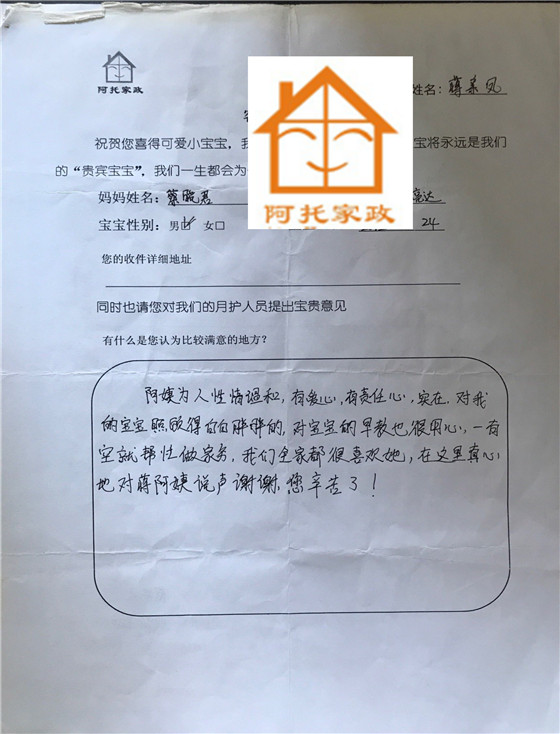 阿托家政
姓名：蒋
祝贺您喜得可爱小宝宝，我 宝将永远是我们
的“贵宾宝宝”，我们一生都会为
妈妈姓名：蔡晓君 达
宝宝性别：男☑ 女□ 24
阿托家政
您的收件详细地址
同时也请您对我们的月护人员提出宝贵意见
有什么是您认为比较满意的地方？
阿姨为人性情温和，有爱心，有责任心，实在．对我
的宝宝照顾得白白胖胖的，对宝宝的早教也很用心，一有
空就帮忙做家务，我们全家都很喜欢她，在这里真心
地对蒋阿姨说声谢谢，您辛苦了！